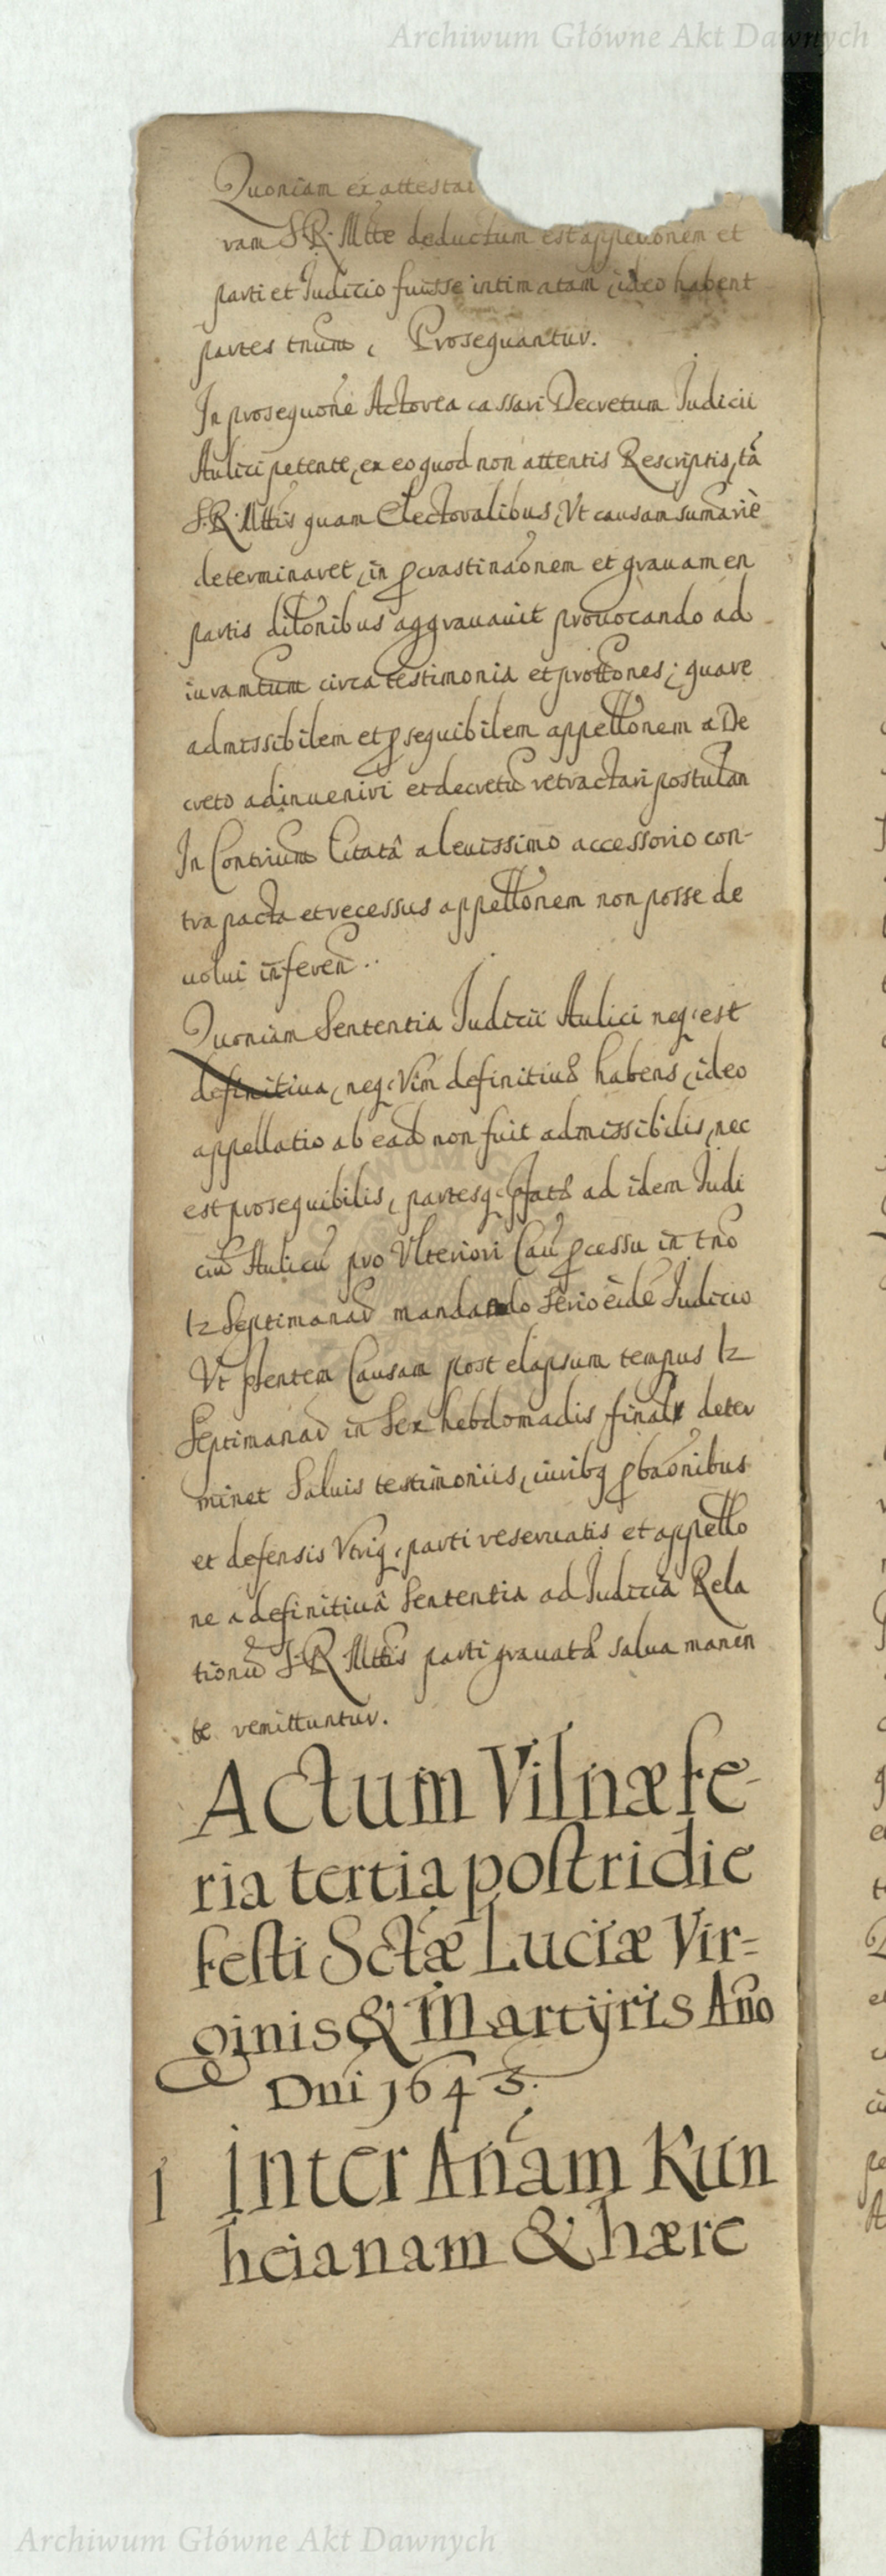 Archiwum Główne Akt Dawnych
Quoniam ex attestat
ram S. R. Mtte deductum est appellonem et
parti et Judicio fuisse intimatam, ideo habent
partes tnum, Prosequantur.
In prosequone Actorea cassari Decretum Judicii
Aulici petente, ex eo quod non attentis Rescriptis, tã
S. R. Mttis quam Electoralibus, Vt causam sumariè
determinaret, in pcrastinaonem et grauamen
partis dilonibus aggrauauit prouocando ad
iuramtum circa testimonia et prottones; quare
admissibilem et psequibilem appellonem a De
creto adinueniri et decretũ retractari postulan
In Contrium Citatâ a leuissimo accessorio con-
tra pacta et recessus appellonem non posse de
uolui inferen..
Quoniam Sententia Judicii Aulici neq. est
definitiua, neq. Vim definitiuæ habens, ideo
appellatio ab ead non fuit admissibilis, nec
est prosequibilis, partesq. pfatæ ad idem Judi
ciũ Aulicũ pro Vlteriori Cau pcessu in tno
12 Septimanar mandando serio eidẽ Judicio
Vt pñtem Causam post elapsum tempus 12
Septimanar in sex hebdomadis final deter
minet Saluis testimoniis, iuribq pbaonibus
et defensis Vtriq. parti reseruatis et appello
ne a definitiuâ Sententia ad Judicia Rela
tionũ S. R. Mttis parti grauatæ salua manen
te remittuntur.
Actum Vilnæ fe-
ria tertia postridie
festi Sctæ Luciæ Vir=
ginis & Martyris Año
Dni 1643.
1 Inter Anam Kun
heianam & hære
Archiwum Główne Akt Dawnych